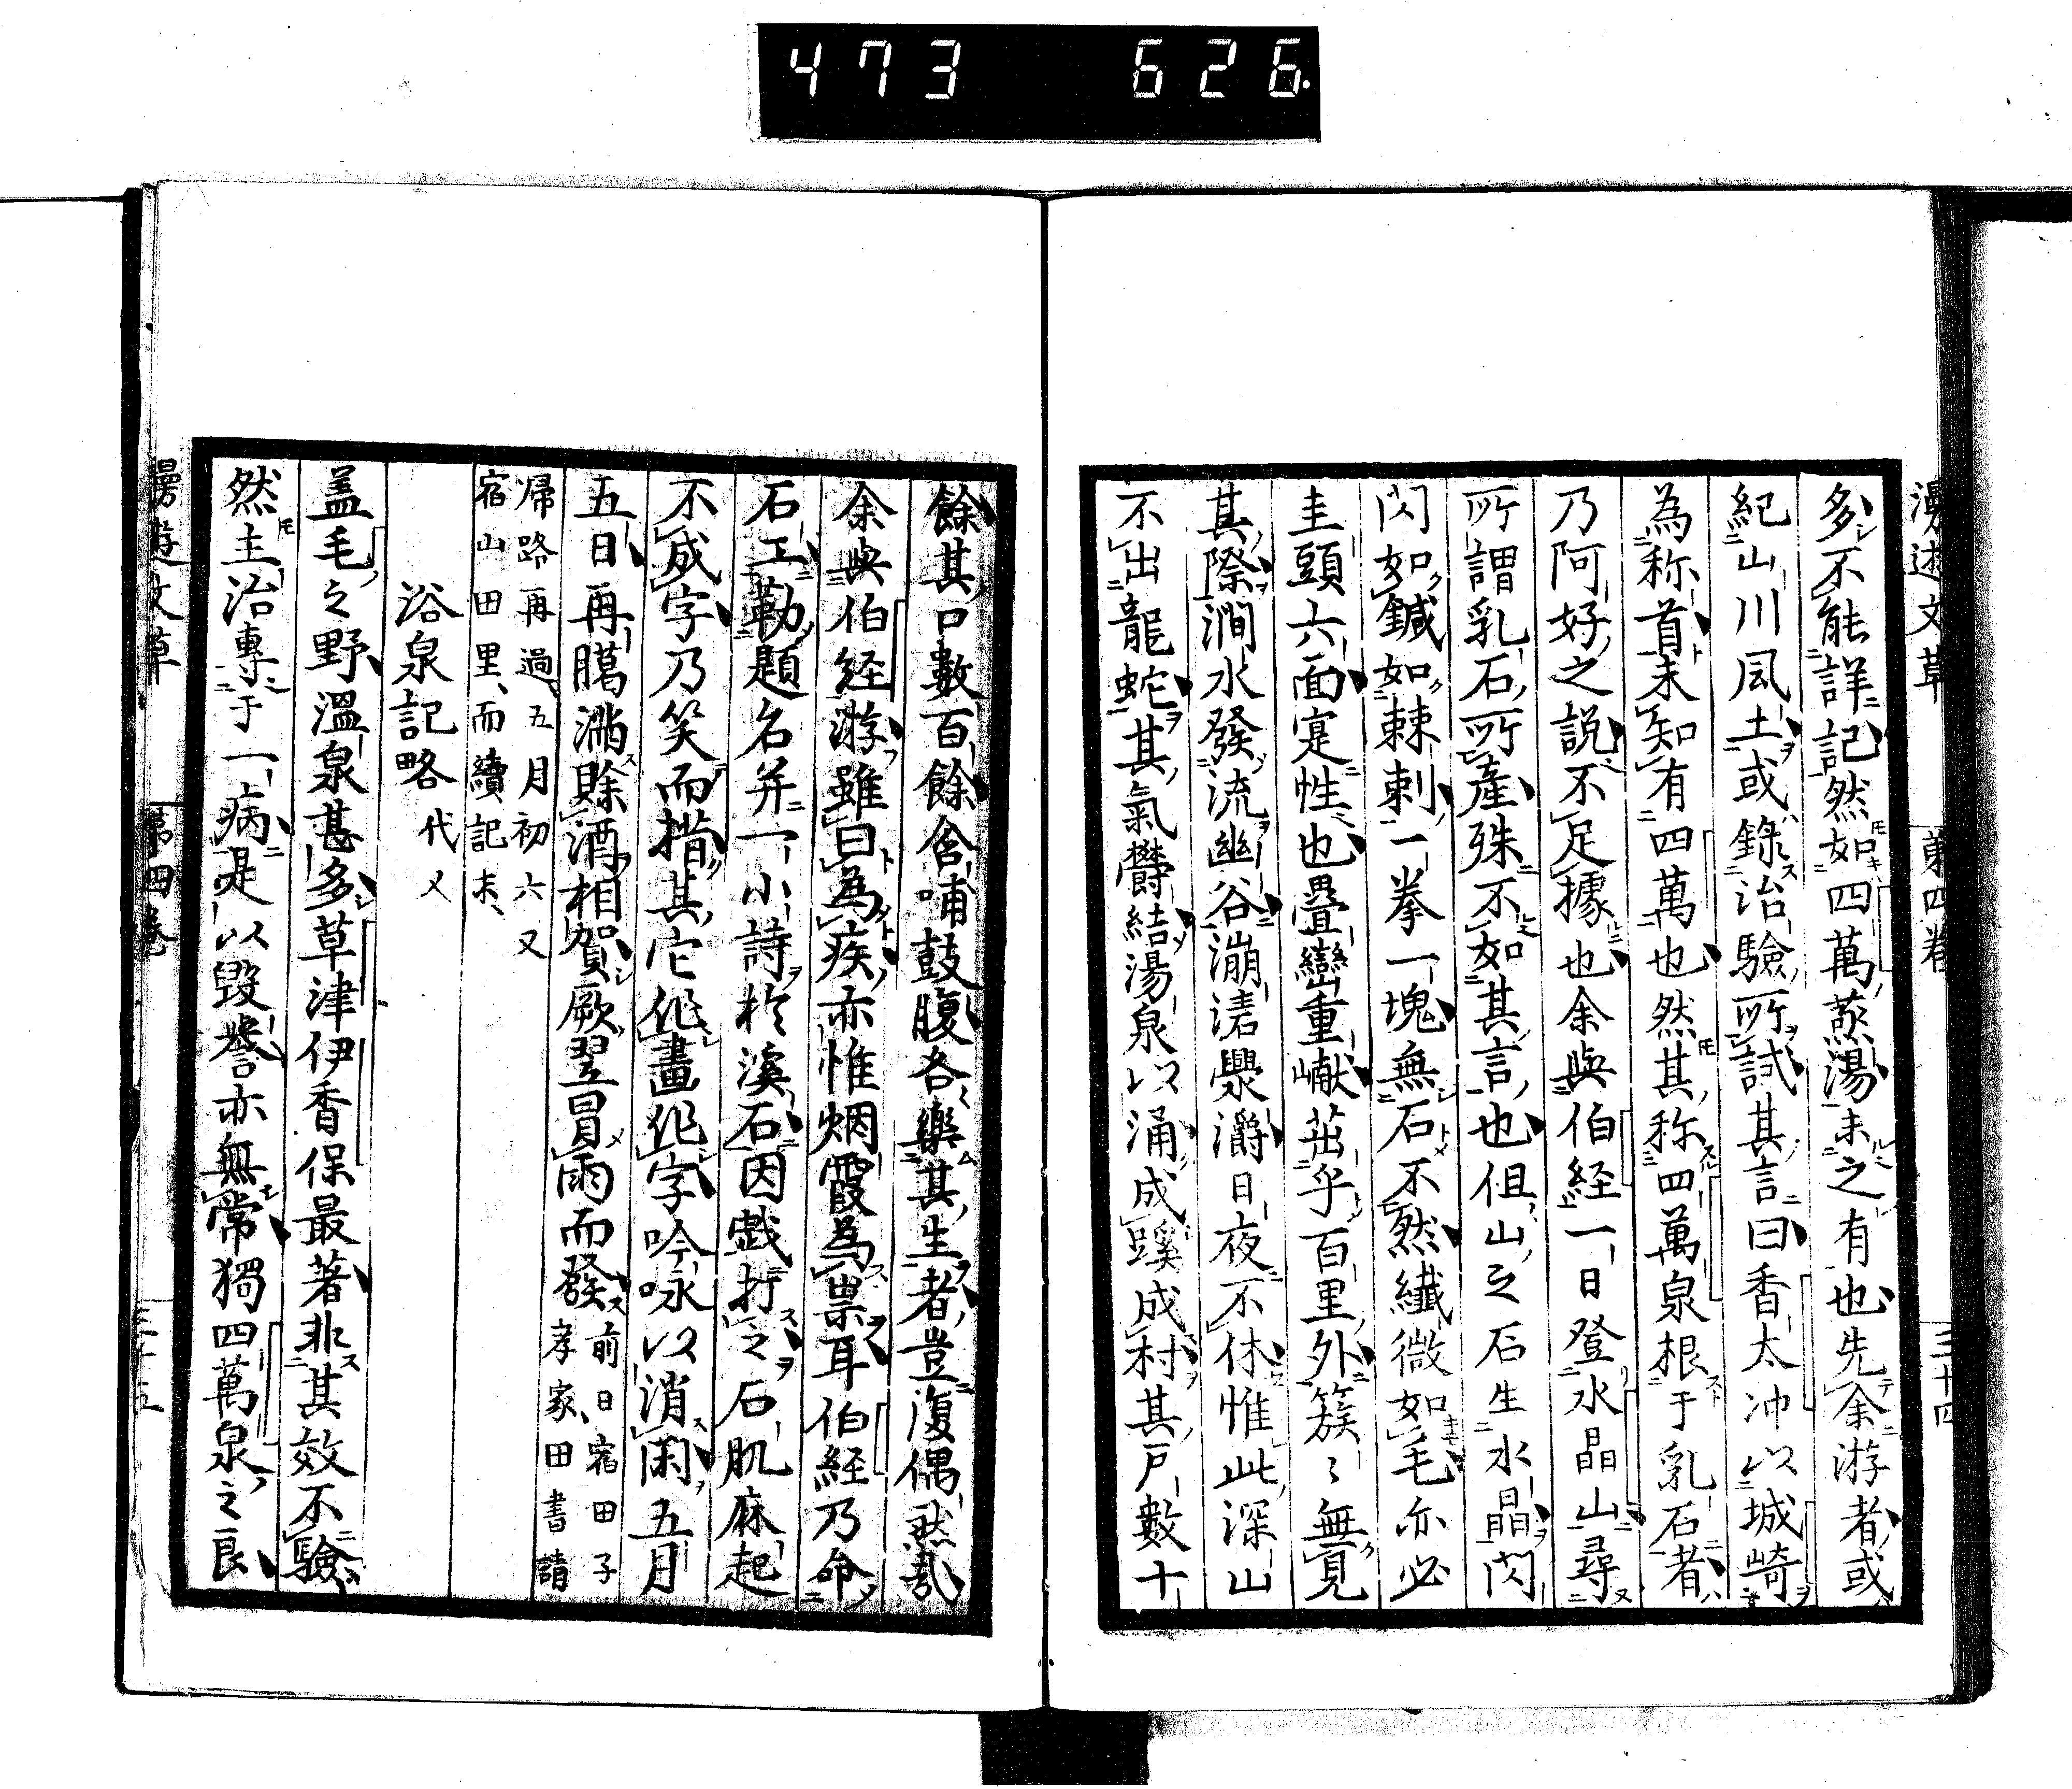 473 626.
漫遊文草 第四卷 三十四
多不能詳記然如四萬蒸湯未之有也先余游者或
紀山川風土或錄治驗所試其言曰香太冲以城崎
為称首未知有四萬也然其称四萬泉根于乳石者
乃阿好之說不足據也余與伯経一日登水晶山尋
所謂乳石所產殊不如其言也但山之石生水晶閃
閃如鍼如棘刺一拳一塊無石不然纎微如毛亦必
圭頭六面寔性也疊巒重巘茁乎百里外簇〻無覓
其際澗水發流幽谷漰濸灥灂日夜不休惟此深山
不出龍蛇其氣欝結湯泉以涌成蹊成村其戸數十
餘其口數百餘含哺鼓腹各樂其生者豈復偶然哉
余與伯経游雖曰為疾亦惟烟霞為祟耳伯経乃命
石工勒題名并一小詩於溪石因戯打之石肌麻起
不成字乃笑而揩其它作畫作字吟咏以消閑五月
五日再臈滿賒酒相賀厥翌冒雨而發前日宿田子
孝家田書請
帰路再過五月初六又
宿山田里而續記末
浴泉記略 代乂
盖毛之野溫泉甚多草津伊香保最著非其效不驗
然主治專于一病是以毀誉亦無常獨四萬泉之良
漫遊文草 第四卷 三十五